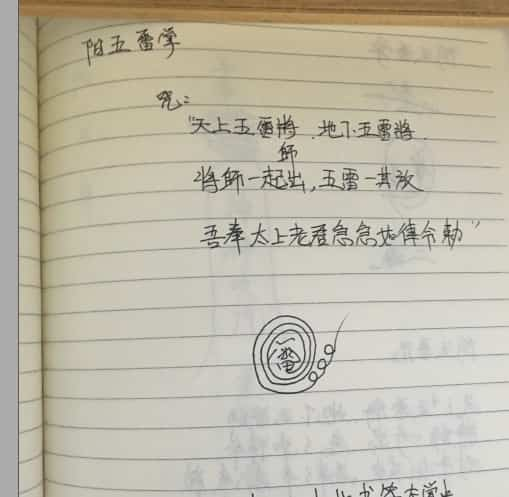 阳五雷掌
咒:
"天上五雷將、地下五雷將.
師
將師一起出,五雷一其放
吾奉太上老君急急如律令勅"
雷